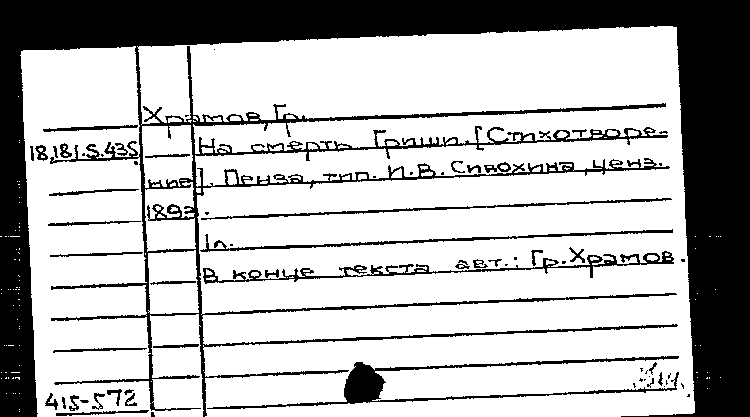 Храмов, Гр.
18.181.5.435 На смерть Гриши. [Стихотворе-
ние]. Пенза, тип. И.В. Сивохина, ценз.
1893.
1л.
В конце текста авт.: Гр. Храмов.
415-572